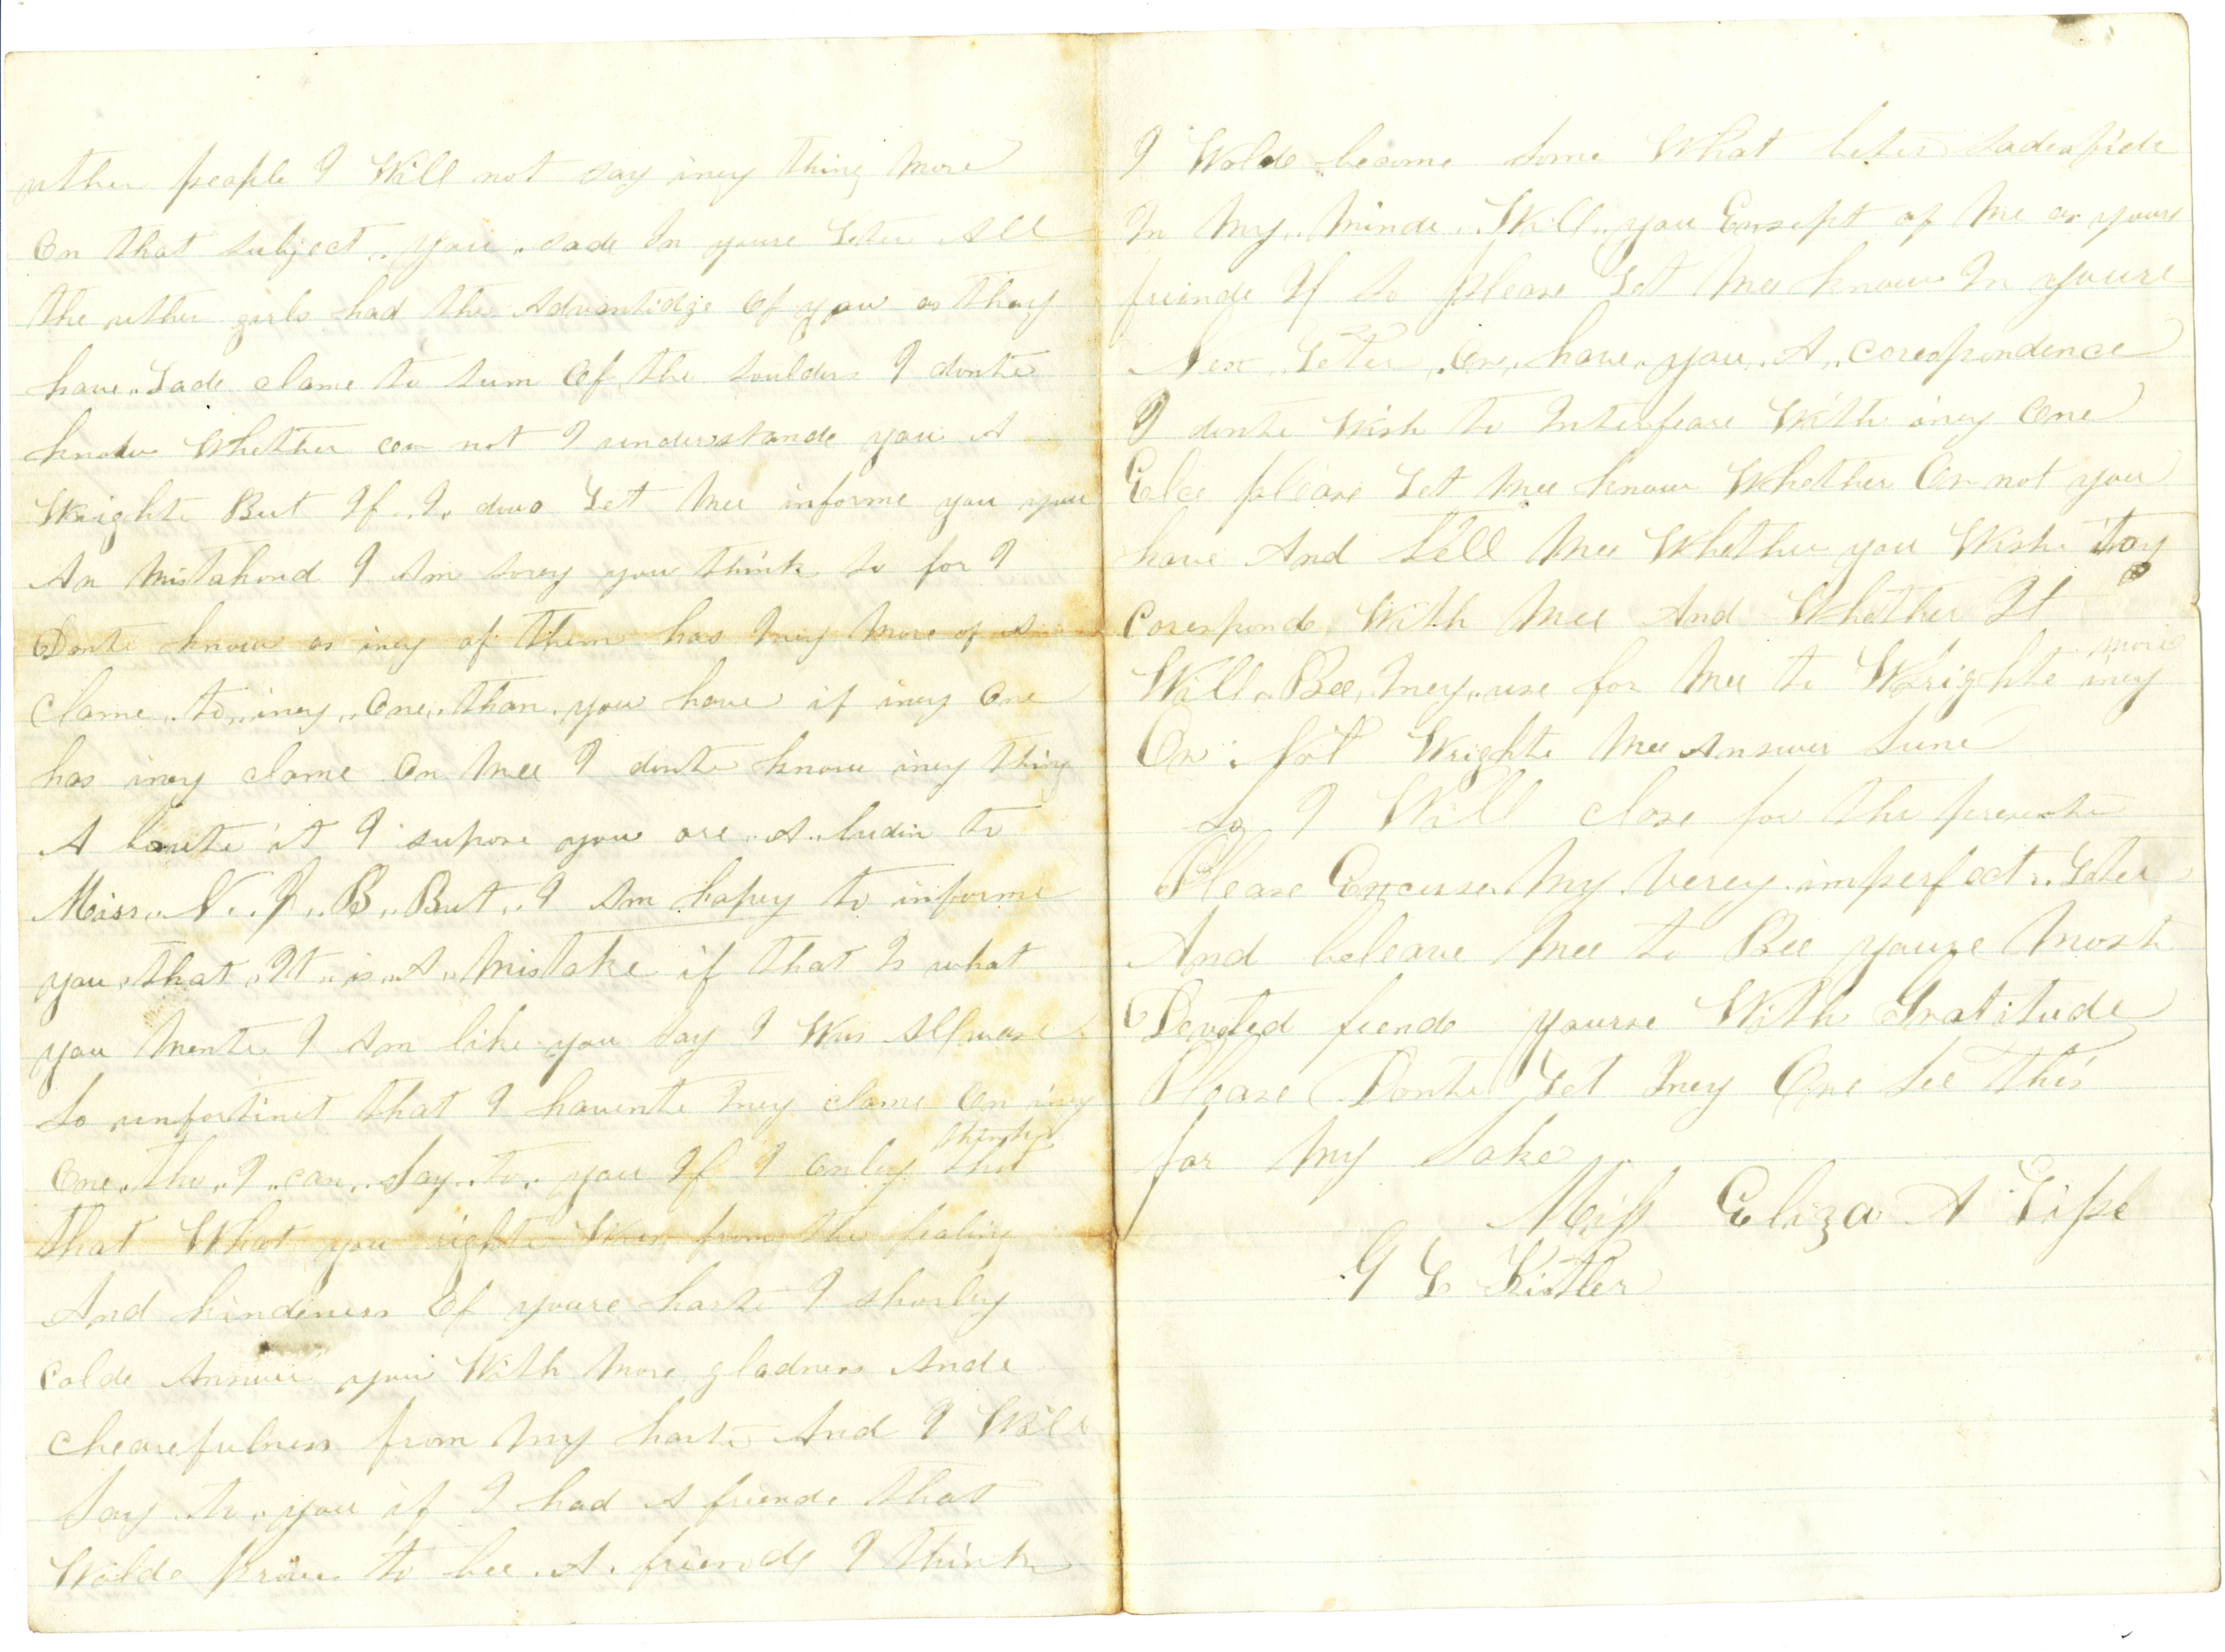 uther people I Will not say iney thing More
On that subject .. you .. sade In youre Leter All
the uther girls had the Advantidge Of you as thay
have .. Lade clame to sum Of the soulders I donte
know Whether or not I understande you A
Wrighte But If .. I .. duo Let Mee informe you you
Ar Mistakend I Am sorey you think so for I
Donte know as iney of them has Iney More of A
clame .. to .. iney .. One .. than .. you have if iney One
has iney clame On Mee I donte know iney thing
A boute it I supose you are .. A .. ludin to
Miss .. N .. J .. B .. But .. I Am hapey to informe
you .. that .. It .. is .. A .. Mistake if that Is what
you Mente I Am like you say I Was Allwase
So unfortinet that I havente Iney clame On iney
One .. tho .. I .. can .. Say .. to .. you If I Onley
that What you righte Was from the fealing
And kindeness Of youre harte I shorley
Colde Answer you With More gladness Ande
chearefulness from My harte And I Will
Say .. to .. you if I had A friende that
Wolde prove to bee .. A .. friende I think
I Wolde become Some What beter
In My .. Minde .. Will .. you Exsept of Me as youre
friende If So please Let Mee know In youre
Nex .. Leter .. Or .. have .. you .. A .. corespondence
I donte Wish to Interfeare With iney One
Else please Let Mee know Whether Or not you
have And tell Mee Whether you Wish to
Coresponde With Mee And Whether It
Will .. Bee .. Iney .. use for Mee to Wrighte iney more
Or Not Wrighte Mee Answer Sune
So I Will close for the presente
Please Excuse .. My .. verey .. imperfect .. Leter
And beleave Mee to Bee youre Most
Devoted friende yourse With Gratitude
Please Donte Let Iney One See this
for My Sake
Miss Eliza A Sipe
G L Kistler